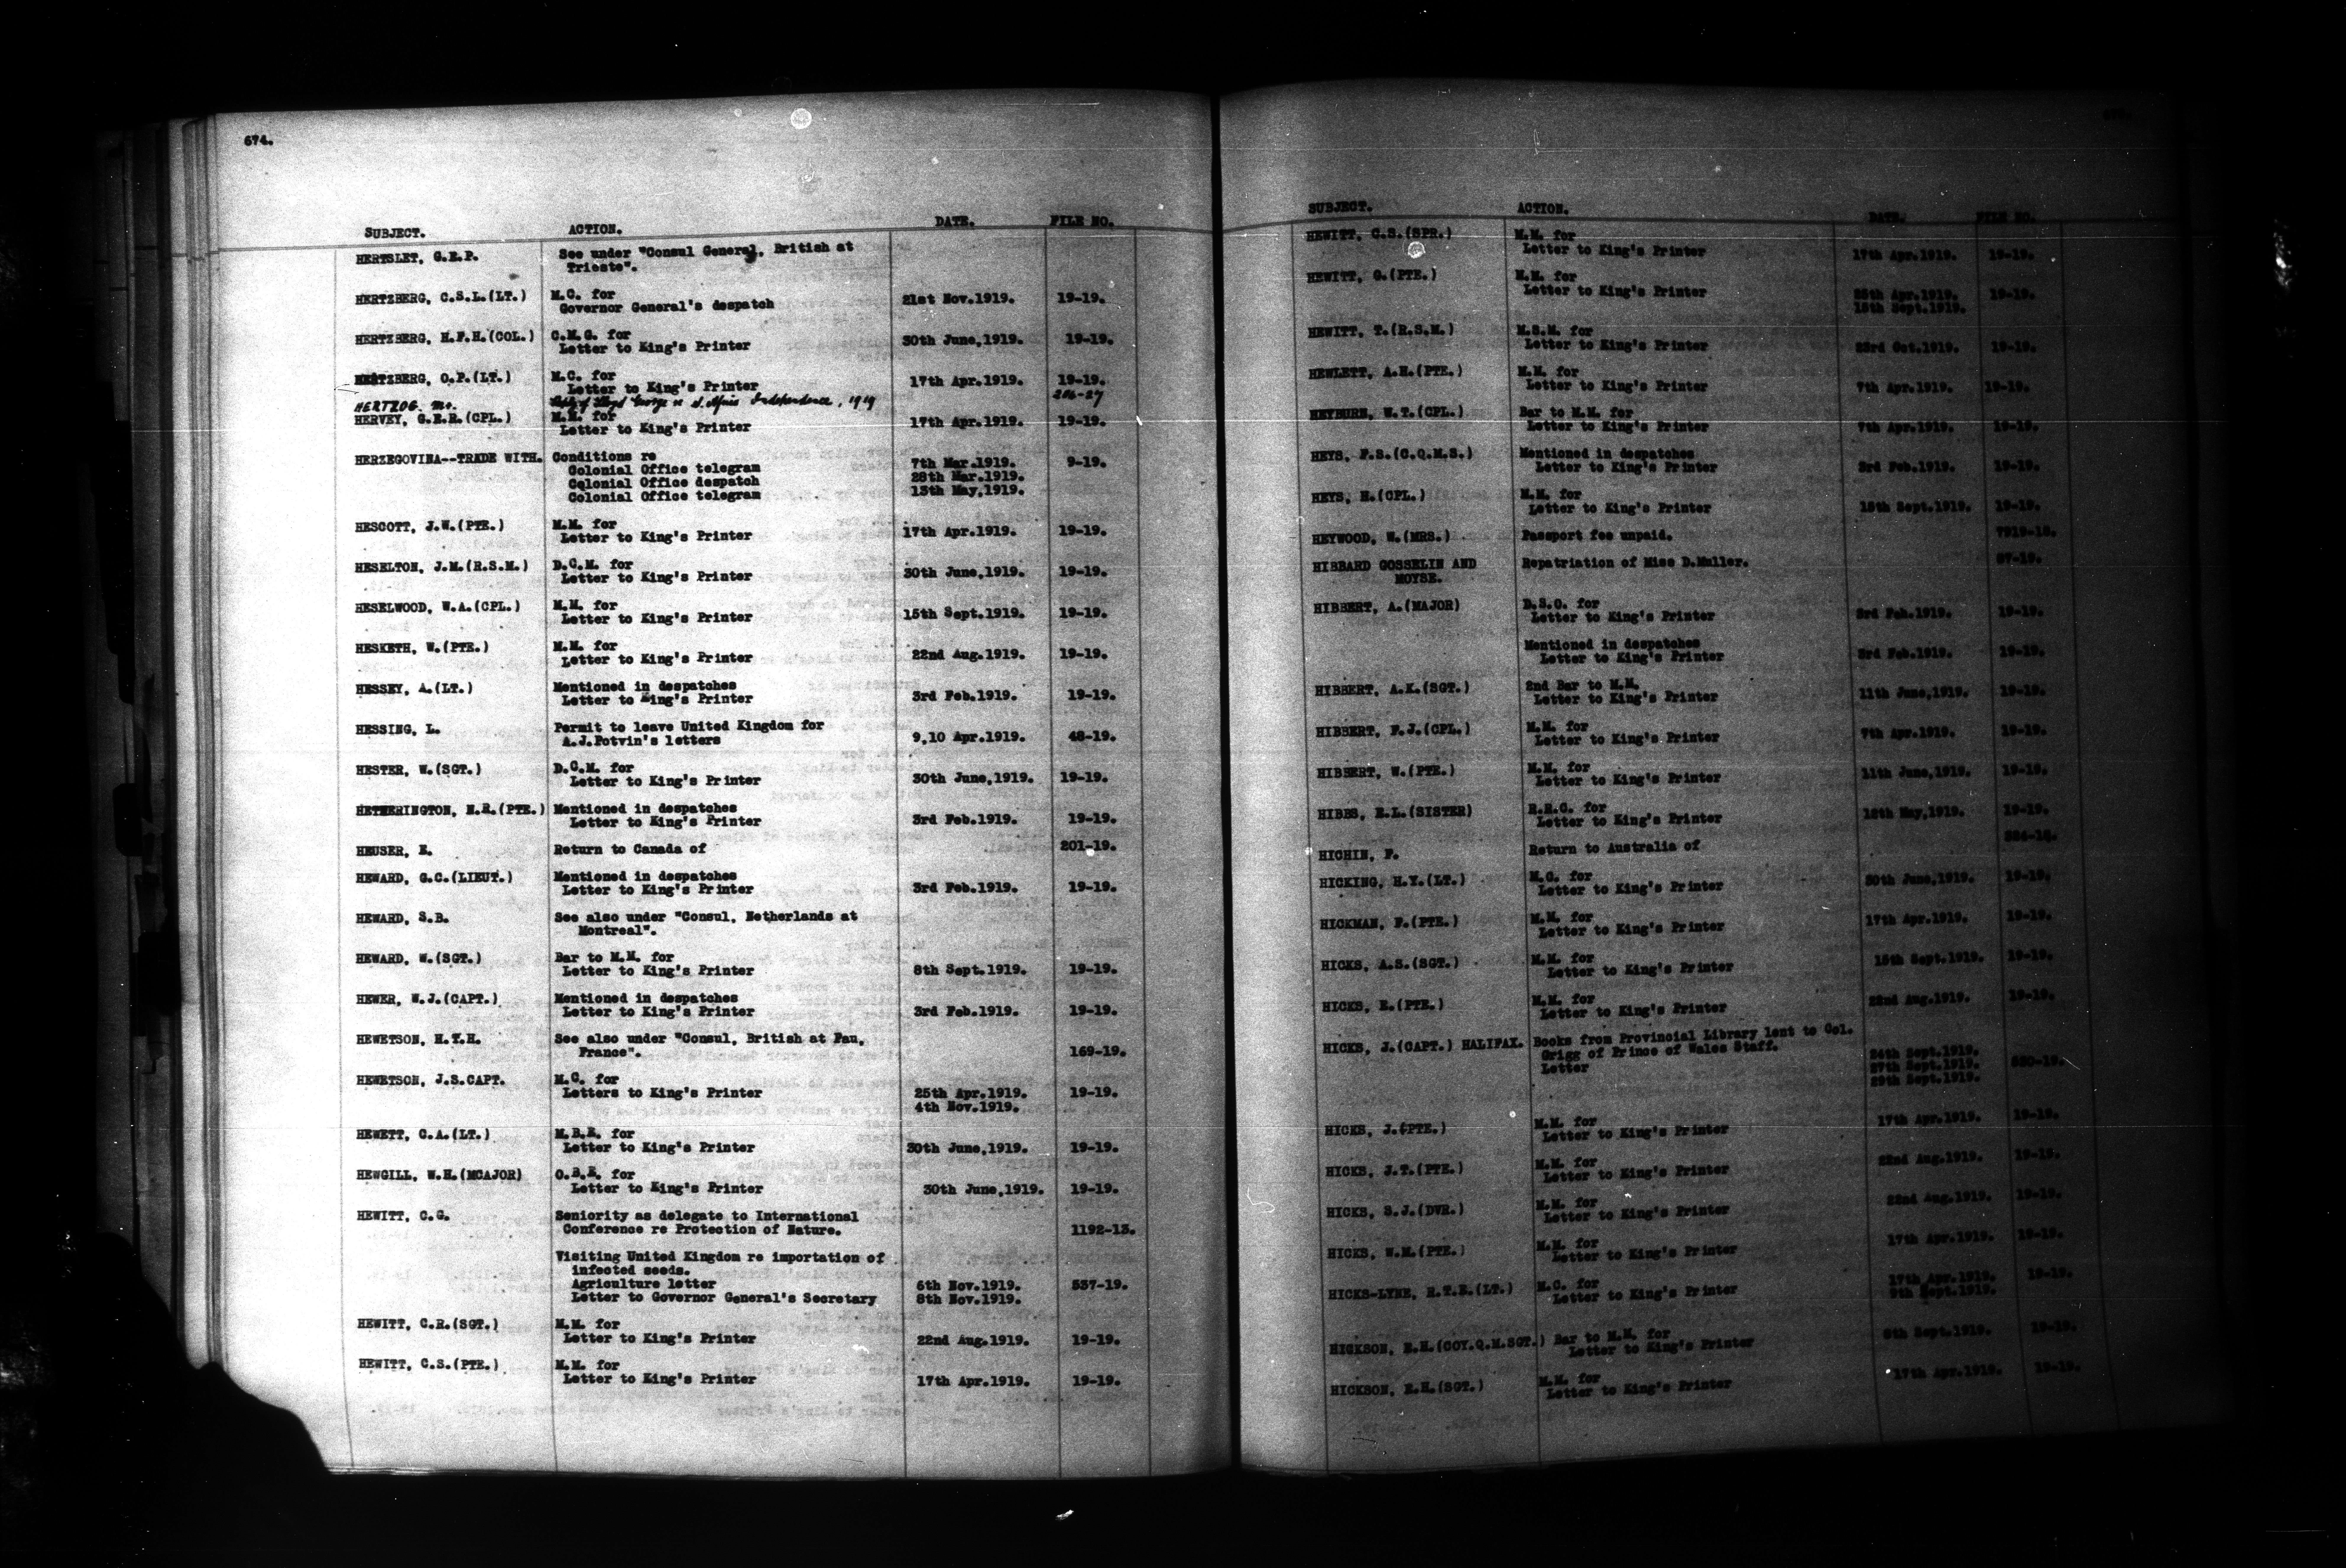 674.
SUBJECT. ACTION. DATE. FILE NO.
HERTSLET, G.E.P. See under "Consul General, British at
Trieste".
HERTZBERG, C.S.L.(LT.) M.C. for
Governor General's despatch 21st Nov.1919. 19-19.
HERTZBERG, H.F.H.(COL.) C.M.G. for
Letter to King's Printer 30th June,1919. 19-19.
HERTZBERG, O.P.(LT.) M.C. for
Letter to King's Printer 17th Apr.1919. 19-19.
HERTZOG. Mr. Lloyd George re S. African Independence, 1919 286-27
HERVEY, G.E.R.(CPL.) M.M. for
Letter to King's Printer 17th Apr.1919. 19-19.
HERZEGOVINA--TRADE WITH. Conditions re
Colonial Office telegram 7th Mar.1919. 9-19.
Colonial Office despatch 28th Mar.1919.
Colonial Office telegram 13th May,1919.
HESCOTT, J.W.(PTE.) M.M. for
Letter to King's Printer 17th Apr.1919. 19-19.
HESELTON, J.M.(R.S.M.) D.C.M. for
Letter to King's Printer 30th June,1919. 19-19.
HESELWOOD, W.A.(CPL.) M.M. for
Letter to King's Printer 15th Sept.1919. 19-19.
HESKETH, W.(PTE.) M.M. for
Letter to King's Printer 22nd Aug.1919. 19-19.
HESSEY, A.(LT.) Mentioned in despatches
Letter to King's Printer 3rd Feb.1919. 19-19.
HESSING, L. Permit to leave United Kingdom for
A.J.Potvin's letters 9,10 Apr.1919. 48-19.
HESTER, W.(SGT.) D.C.M. for
Letter to King's Printer 30th June,1919. 19-19.
HETHERINGTON, N.R.(PTE.) Mentioned in despatches
Letter to King's Printer 3rd Feb.1919. 19-19.
HEUSER, E. Return to Canada of 201-19.
HEWARD, G.C.(LIEUT.) Mentioned in despatches
Letter to King's Printer 3rd Feb.1919. 19-19.
HEWARD, S.B. See also under "Consul, Netherlands at
Montreal".
HEWARD, W.(SGT.) Bar to M.M. for
Letter to King's Printer 8th Sept.1919. 19-19.
HEWER, W.J.(CAPT.) Mentioned in despatches
Letter to King's Printer 3rd Feb.1919. 19-19.
HEWETSON, H.T.H. See also under "Consul, British at Pau,
France". 169-19.
HEWETSON, J.S.CAPT. M.C. for
Letters to King's Printer 25th Apr.1919. 19-19.
4th Nov.1919.
HEWETT, C.A.(LT.) M.B.E. for
Letter to King's Printer 30th June,1919. 19-19.
HEWGILL, W.H.(MCAJOR) O.B.E. for
Letter to King's Printer 30th June,1919. 19-19.
HEWITT, C.G. Seniority as delegate to International
Conference re Protection of Nature. 1192-13.
Visiting United Kingdom re importation of
infected seeds.
Agriculture letter 6th Nov.1919. 537-19.
Letter to Governor General's Secretary 8th Nov.1919.
HEWITT, C.R.(SGT.) M.M. for
Letter to King's Printer 22nd Aug.1919. 19-19.
HEWITT, C.S.(PTE.) M.M. for
Letter to King's Printer 17th Apr.1919. 19-19.
SUBJECT. ACTION. DATE. FILE NO.
HEWITT, C.S.(SPR.) M.M. for
Letter to King's Printer 17th Apr.1919. 19-19.
HEWITT, G.(PTE.) M.M. for
Letter to King's Printer 25th Apr.1919. 19-19.
15th Sept.1919.
HEWITT, T.(R.S.M.) M.S.M. for
Letter to King's Printer 23rd Oct.1919. 19-19.
HEWLETT, A.H.(PTE.) M.M. for
Letter to King's Printer 7th Apr.1919. 19-19.
HEYBURN, W.T.(CPL.) Bar to M.M. for
Letter to King's Printer 7th Apr.1919. 19-19.
HEYS, F.S.(C.Q.M.S.) Mentioned in despatches
Letter to King's Printer 3rd Feb.1919. 19-19.
HEYS, H.(CPL.) M.M. for
Letter to King's Printer 15th Sept.1919. 19-19.
HEYWOOD, W.(MRS.) Passport fee unpaid. 7919-18.
HIBBARD GOSSELIN AND Repatriation of Miss D.Muller. 87-19.
MOYSE.
HIBBERT, A.(MAJOR) D.S.O. for
Letter to King's Printer 3rd Feb.1919. 19-19.
Mentioned in despatches
Letter to King's Printer 3rd Feb.1919. 19-19.
HIBBERT, A.K.(SGT.) 2nd Bar to M.M.
Letter to King's Printer 11th June,1919. 19-19.
HIBBERT, F.J.(CPL.) M.M. for
Letter to King's Printer 7th Apr.1919. 19-19.
HIBBERT, W.(PTE.) M.M. for
Letter to King's Printer 11th June,1919. 19-19.
HIBBS, E.L.(SISTER) R.R.C. for
Letter to King's Printer May,1919. 19-19.
HICHIN, F. Return to Australia of
HICKING, H.Y.(LT.) M.C. for
Letter to King's Printer 30th June,1919. 19-19.
HICKMAN, F.(PTE.) M.M. for
Letter to King's Printer 17th Apr.1919. 19-19.
HICKS, A.S.(SGT.) M.M. for
Letter to King's Printer 15th Sept.1919. 19-19.
HICKS, E.(PTE.) M.M. for
Letter to King's Printer 22nd Aug.1919. 19-19.
HICKS, J.(CAPT.) HALIFAX. Books from Provincial Library lent to Col.
Grigg of Prince of Wales Staff.
Letter 24th Sept.1919.
27th Sept.1919.
29th Sept.1919.
HICKS, J.(PTE.) M.M. for
Letter to King's Printer 17th Apr.1919. 19-19.
HICKS, J.T.(PTE.) M.M. for
Letter to King's Printer 22nd Aug.1919. 19-19.
HICKS, S.J.(DVR.) M.M. for
Letter to King's Printer 22nd Aug.1919. 19-19.
HICKS, W.M.(PTE.) M.M. for
Letter to King's Printer 17th Apr.1919. 19-19.
HICKS-LYNE, R.T.E.(LT.) M.C. for
Letter to King's Printer 17th Apr.1919. 19-19.
9th Sept.1919.
HICKSON, E.H.(COY.Q.M.SGT.) Bar to M.M. for
Letter to King's Printer 8th Sept.1919. 19-19.
HICKSON, E.H.(SGT.) M.M. for
Letter to King's Printer 17th Apr.1919. 19-19.